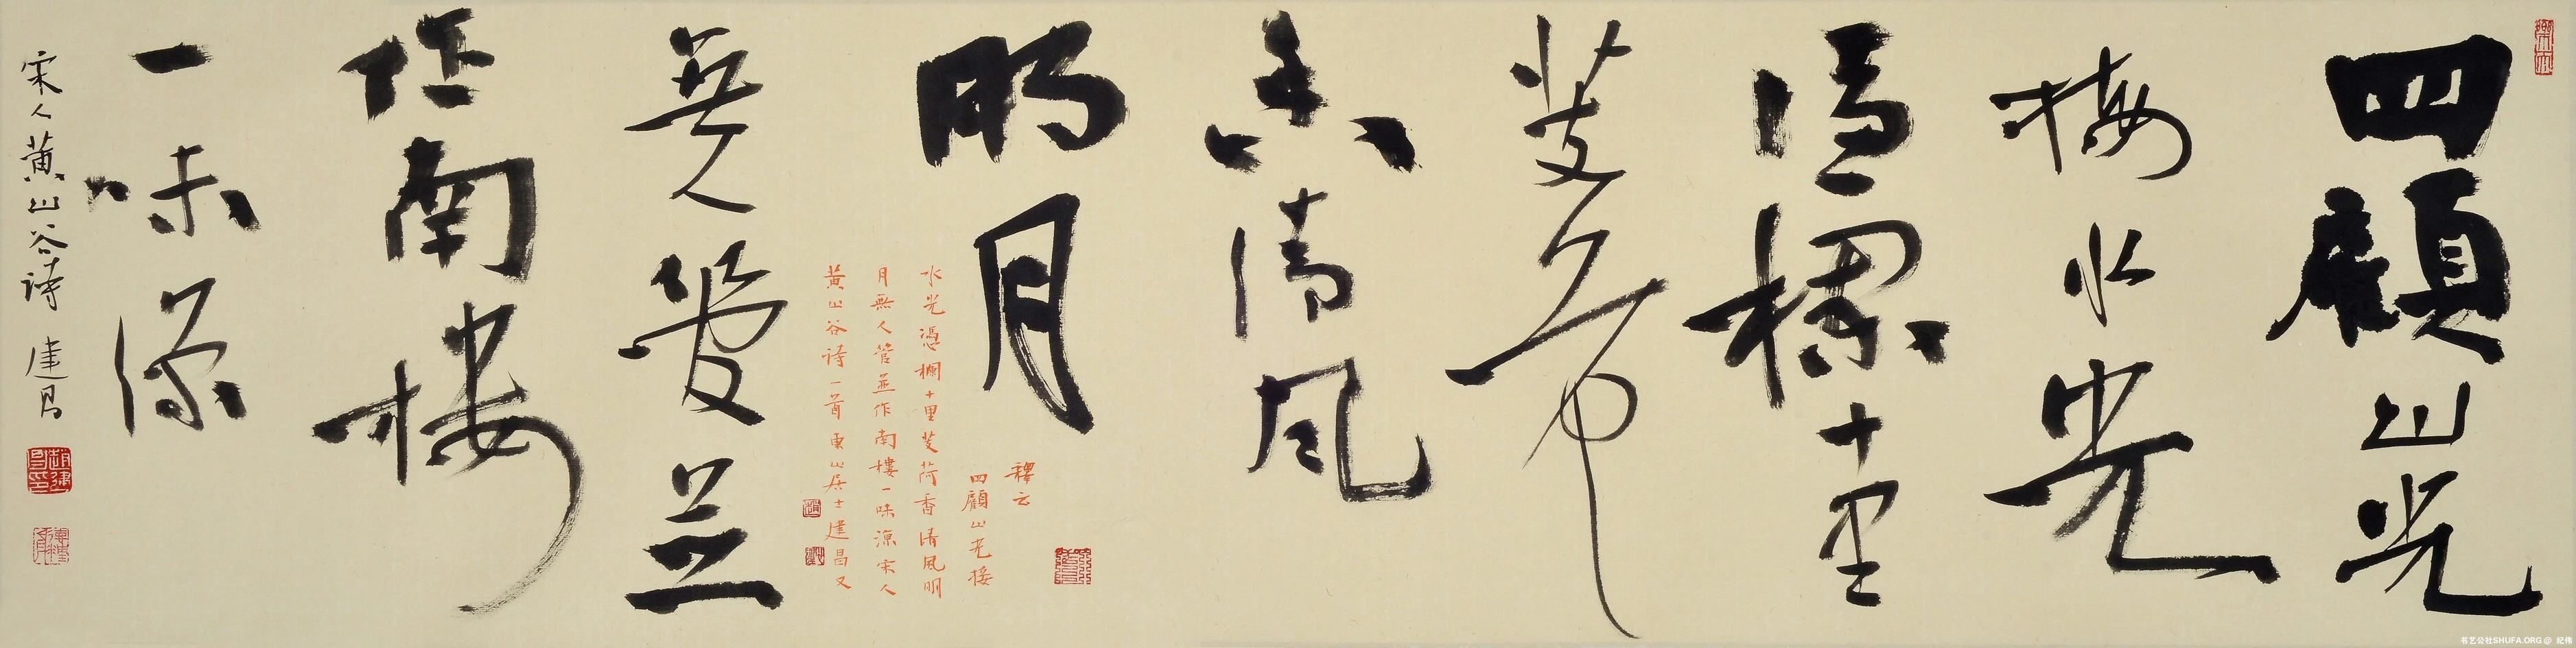 四顧山光
接水光
憑欄十里
芰荷
香清風
明月
釋云
四顧山光接
水光憑欄十里芰荷香清風明
月無人管並作南樓一味涼宋人
黄山谷诗一首東山居士建昌又
無人管並
作南樓
一味涼
宋人黄山谷诗 建昌
书艺公社SHUFA.ORG @ 纪伟